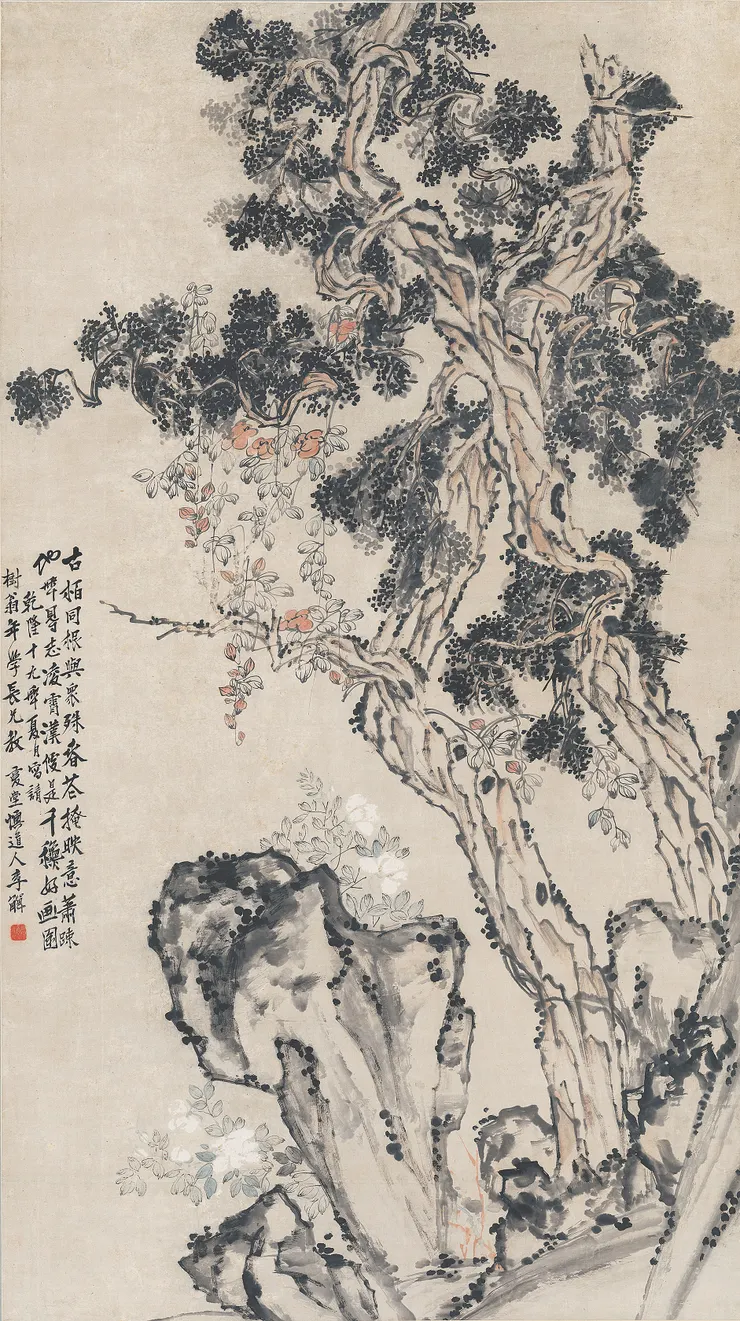 古栢同根與衆殊春花掩映意蕭疎
他年得志凌霄漢便是千穐好画圖
乾隆十九年夏月寫請
樹翁年學長兄教 復堂懊道人李觶